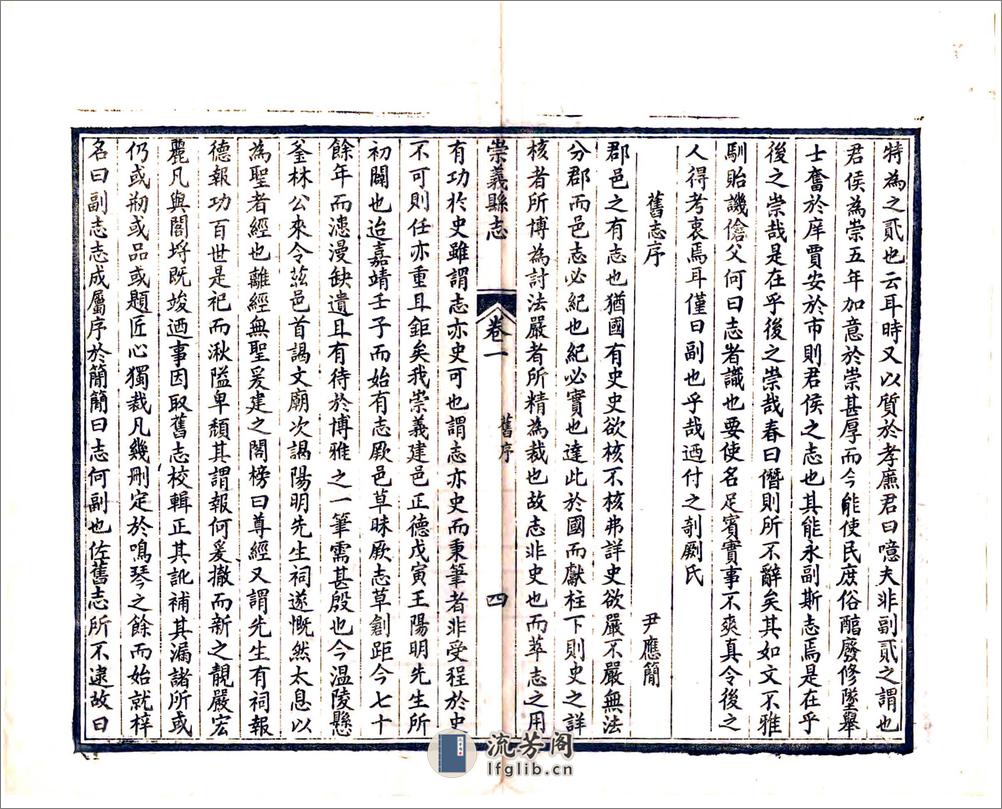 特為之貳也云耳時又以質於孝廉君曰噫夫非副貳之謂也
君侯為崇五年加意於崇甚厚而今能使民庶俗醕廢修墜舉
士奮於庠賈安於市則君侯之志也其能永副斯志焉是在乎
後之崇哉是在乎後之崇哉春曰僭則所不辭矣其如文不雅
馴貽譏傖父何曰志者識也要使名足賓實事不爽真令後之
人得考衷焉耳僅曰副也乎哉迺付之剞劂氏
舊志序 尹應簡
郡邑之有志也猶國有史史欲核不核弗詳史欲嚴不嚴無法
分郡而邑志必紀也紀必實也達此於國而獻柱下則史之詳
核者所博為討法嚴者所精為裁也故志非史也而萃志之用
崇義縣志 卷一 舊序 四
有功於史雖謂志亦史可也謂志亦史而秉筆者非受程於史
不可則任亦重且鉅矣我崇義建邑正德戊寅王陽明先生所
初闢也迨嘉靖壬子而始有志厥邑草昧厥志草創距今七十
餘年而漶漫缺遺且有待於博雅之一筆需甚殷也今温陵懸
釜林公來令茲邑首謁文廟次謁陽明先生祠遂慨然太息以
為聖者經也離經無聖爰建之閣榜曰尊經又謂先生有祠報
德報功百世是祀而湫隘卑頹其謂報何爰撤而新之靚嚴宏
麗凡與閣埒既竣迺事因取舊志校輯正其訛補其漏諸所或
仍或剏或品或題匠心獨裁凡幾刪定於鳴琴之餘而始就梓
名曰副志志成屬序於簡簡曰志何副也佐舊志所不逮故曰
流芳阁
lfglib.cn